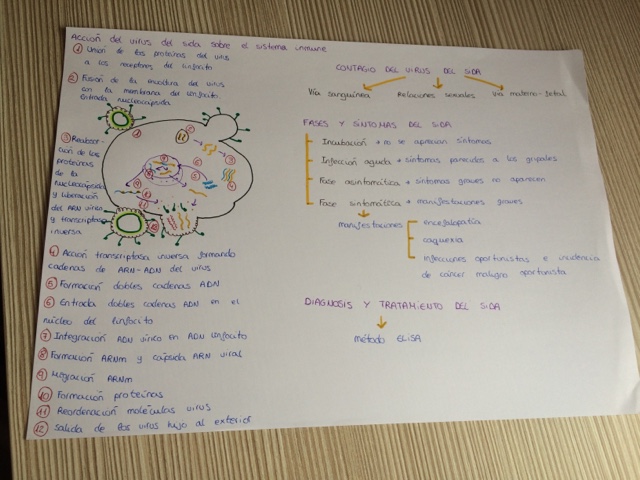 Acción del virus del sida sobre el sistema inmune
① Unión de las proteínas del virus
a los receptores del linfocito
② Fusión de la envoltura del virus
con la membrana del linfocito.
Entrada nucleocápsida
③ Reabsor-
ción de las
proteínas
de la
nucleocápsida
y liberación
del ARN vírico
y transcriptasa
inversa
④ Acción transcriptasa inversa formando
cadenas de ARN-ADN del virus
⑤ Formación dobles cadenas ADN
⑥ Entrada dobles cadenas ADN en el
núcleo del linfocito
⑦ Integración ADN vírico en ADN linfocito
⑧ Formación ARNm y cápsida ARN viral
⑨ Migración ARNm
⑩ Formación proteínas
⑪ Reordenación moléculas virus
⑫ Salida de los virus hijo al exterior
CONTAGIO DEL VIRUS DEL SIDA
Vía sanguínea Relaciones sexuales Vía materno-fetal
FASES Y SÍNTOMAS DEL SIDA
Incubación → no se aprecian síntomas
Infección aguda → síntomas parecidos a los gripales
Fase asintomática → síntomas graves no aparecen
Fase sintomática → manifestaciones graves
manifestaciones
encefalopatía
caquexia
infecciones oportunistas e incidencia
de cáncer maligno oportunista
DIAGNOSIS Y TRATAMIENTO DEL SIDA
método ELISA